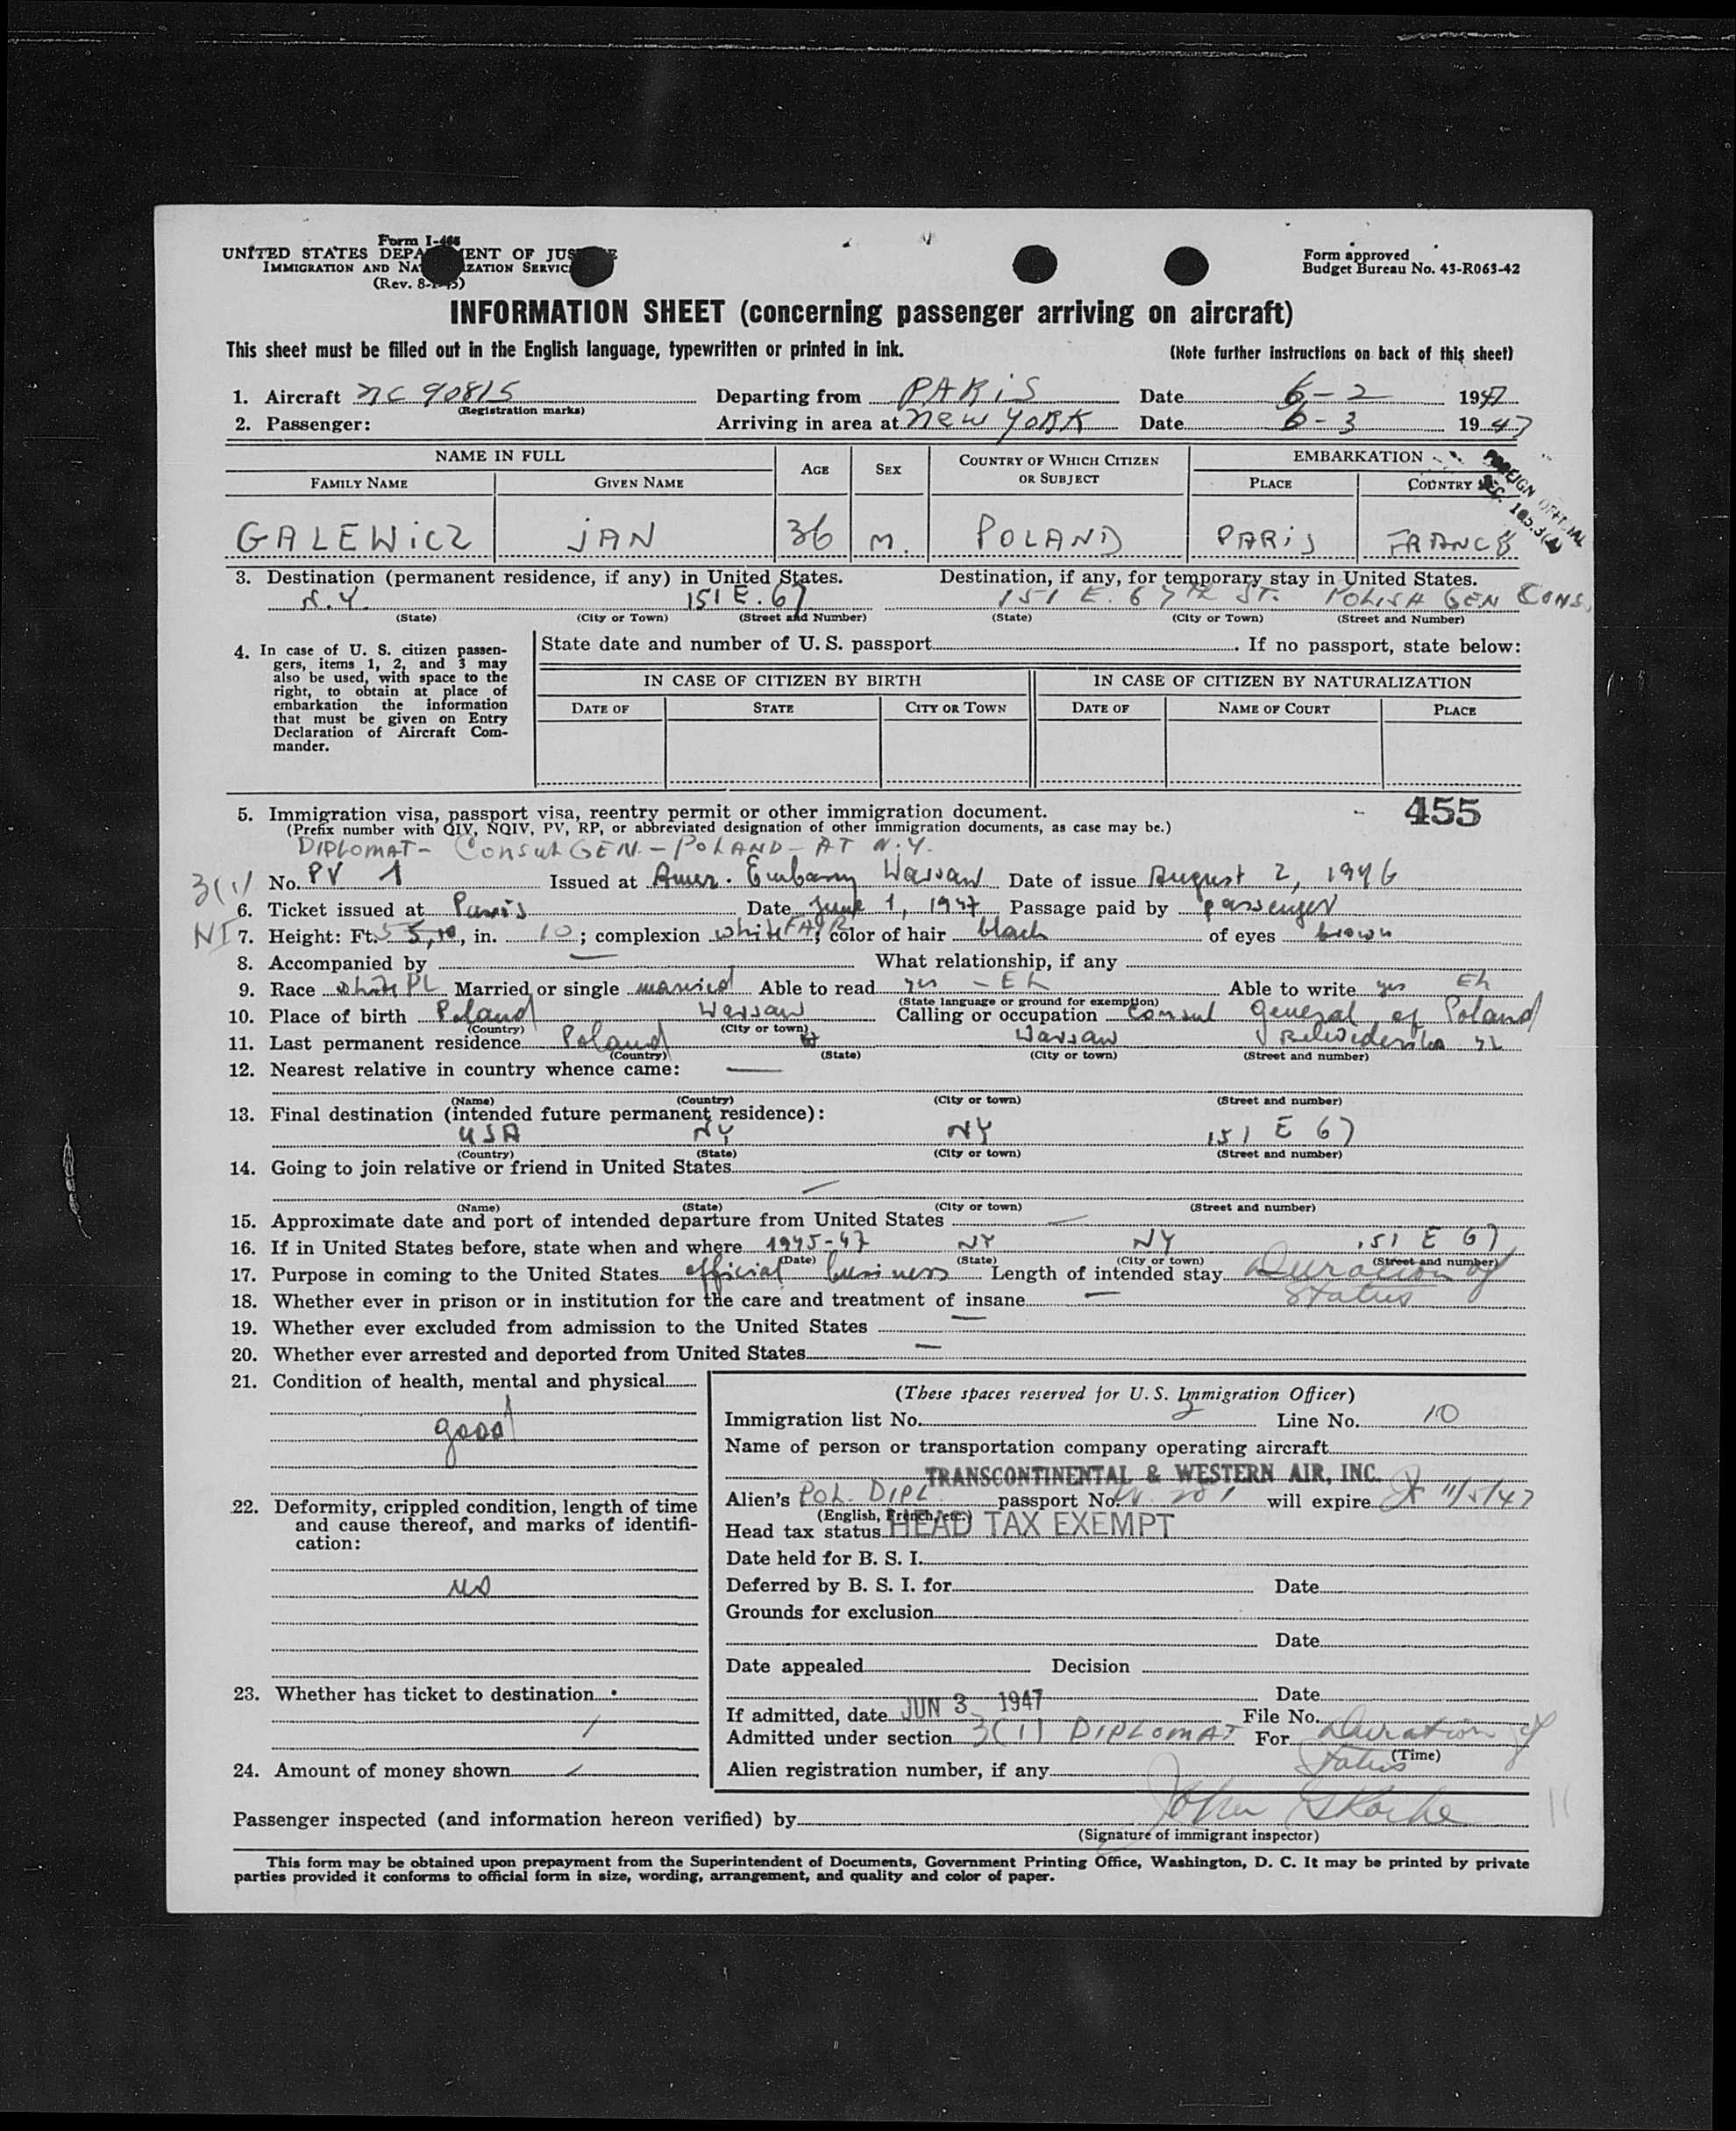 Form I-466
UNITED STATES DEPARTMENT OF JUSTICE
IMMIGRATION AND NATURALIZATION SERVICE
(Rev. 8-1-45)
Form approved
Budget Bureau No. 43-R063-42
INFORMATION SHEET (concerning passenger arriving on aircraft)
This sheet must be filled out in the English language, typewritten or printed in ink. (Note further instructions on back of this sheet)
1. Aircraft NC 90815 Departing from PARIS Date 6-2 1947
(Registration marks)
2. Passenger: Arriving in area at NEW YORK Date 6-3 1947
FOREIGN OFFICIAL
SEC. 105.3(
NAME IN FULL AGE SEX COUNTRY OF WHICH CITIZEN OR SUBJECT EMBARKATION
FAMILY NAME GIVEN NAME PLACE COUNTRY
GALEWicz jAN 36 M. POLAND PARIS FRANCE
3. Destination (permanent residence, if any) in United States. Destination, if any, for temporary stay in United States.
N.Y. 151 E. 67 151 E. 67TH ST. POLISH GEN CONS.
(State) (City or Town) (Street and Number) (State) (City or Town) (Street and Number)
4. In case of U. S. citizen passengers, items 1, 2, and 3 may also be used, with space to the right, to obtain at place of embarkation the information that must be given on Entry Declaration of Aircraft Commander.
State date and number of U. S. passport. If no passport, state below:
IN CASE OF CITIZEN BY BIRTH IN CASE OF CITIZEN BY NATURALIZATION
DATE OF STATE CITY OR TOWN DATE OF NAME OF COURT PLACE
455
5. Immigration visa, passport visa, reentry permit or other immigration document.
(Prefix number with QIV, NQIV, PV, RP, or abbreviated designation of other immigration documents, as case may be.)
DIPLOMAT- CONSUL GEN. - POLAND - AT N.Y.
3(1) No. PV 1 Issued at Amer. Embassy Warsaw Date of issue August 2, 1946
6. Ticket issued at Paris Date June 1, 1947 Passage paid by passenger
NI 7. Height: Ft. 5 5,10, in. 10; complexion white FAIR; color of hair black of eyes brown
8. Accompanied by — What relationship, if any
9. Race white PL Married or single married Able to read yes - EL Able to write yes EL
(State language or ground for exemption)
10. Place of birth Poland Warsaw Calling or occupation Consul General of Poland
(Country) (City or town)
11. Last permanent residence Poland Warsaw Belwederska
(Country) (State) (City or town) (Street and number)
12. Nearest relative in country whence came: —
(Name) (Country) (City or town) (Street and number)
13. Final destination (intended future permanent residence):
USA NY NY 151 E 67
(Country) (State) (City or town) (Street and number)
14. Going to join relative or friend in United States
—
(Name) (State) (City or town) (Street and number)
15. Approximate date and port of intended departure from United States —
16. If in United States before, state when and where 1945-47 NY NY 151 E 67
(Date) (State) (City or town) (Street and number)
17. Purpose in coming to the United States official business Length of intended stay Duration of
Status
18. Whether ever in prison or in institution for the care and treatment of insane —
19. Whether ever excluded from admission to the United States —
20. Whether ever arrested and deported from United States —
21. Condition of health, mental and physical
good
22. Deformity, crippled condition, length of time and cause thereof, and marks of identification:
no
23. Whether has ticket to destination
24. Amount of money shown
(These spaces reserved for U. S. Immigration Officer)
Immigration list No. 2 Line No. 10
Name of person or transportation company operating aircraft
TRANSCONTINENTAL & WESTERN AIR, INC.
Alien's POL. DIPL. passport No. will expire 11/5/47
(English, French, etc.)
Head tax status HEAD TAX EXEMPT
Date held for B. S. I.
Deferred by B. S. I. for Date
Grounds for exclusion
Date
Date appealed Decision
Date
If admitted, date JUN 3 1947 File No.
Admitted under section 3(1) DIPLOMAT For Duration of
Status (Time)
Alien registration number, if any
Passenger inspected (and information hereon verified) by John
(Signature of immigrant inspector)
This form may be obtained upon prepayment from the Superintendent of Documents, Government Printing Office, Washington, D. C. It may be printed by private
parties provided it conforms to official form in size, wording, arrangement, and quality and color of paper.